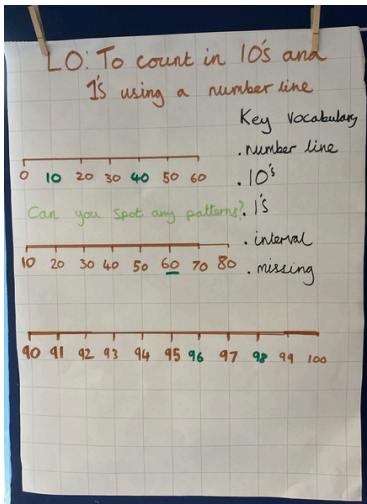 LO: To count in 10's and
1's using a number line
Key vocabulary
. number line
. 10's
. 1's
. interval
. missing
0 10 20 30 40 50 60
Can you spot any patterns?
10 20 30 40 50 60 70 80
90 91 92 93 94 95 96 97 98 99 100